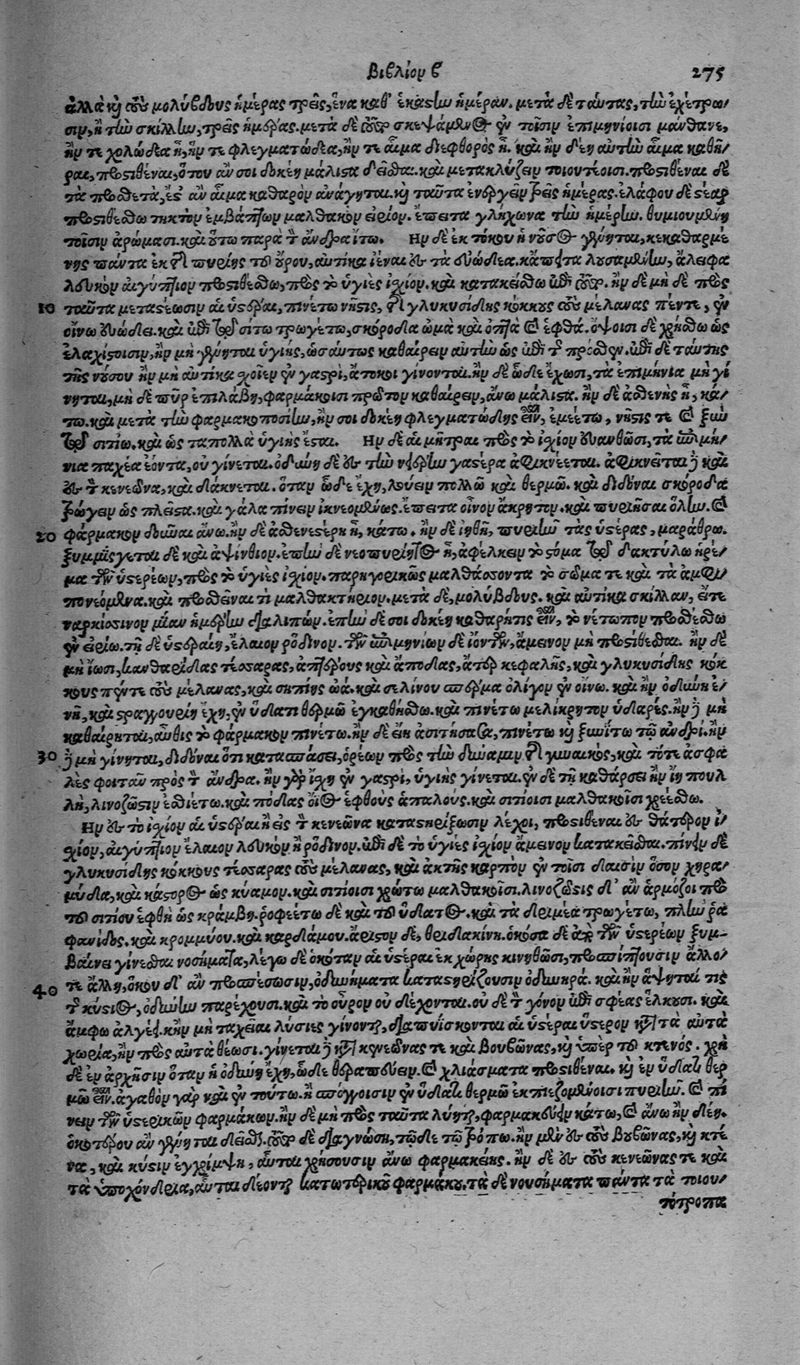 Βιβλίον β 275
ἀλλὰ καὶ τοὺς μολύβδους ἡμέρας τρεῖς, ἕνα καθ' ἑκάστην ἡμέραν. μετὰ δὲ ταύτας, τὴν ἐχέτρω/
σιν, ἢ τὴν σκίλλην, τρεῖς ἡμέρας. μετὰ δὲ τοῦτο σκεψάμενος ἐν τοῖσιν ἐπιμηνίοισι μάνθανε,
ἤν τε χολώδεα ᾖ, ἤν τε φλεγματώδεα, ἤν τε αἷμα διεφθορὸς ᾖ. καὶ ἢν δέῃ αὐτὴν αἷμα καθῆ/
ραι, προστιθέναι, ὅτου ἄν σοι δοκέῃ μάλιστα δεῖσθαι. καὶ μετακλύζειν τοιουτέοισι. προστιθέναι δὲ
τὰ προσθετὰ, ἔστ' ἂν αἷμα καθαρὸν ἀνάγηται. καὶ ταῦτα ἐνεργεῖν τρεῖς ἡμέρας. ἐλάφου δὲ στέαρ
προστιθέσθω τηκτὸν ἐμβάπτων μαλθακὸν εἴριον. ἔπειτα γλήχωνα τὴν ἡμέρην. θυμιουμένη
τοῖσιν ἀρώμασι. καὶ οὕτω παρὰ τὸν ἄνδρα ἴτω. Ἢν δὲ ἐκ τόκου ἡ νοῦσος γένηται, κεκαθαρμέ
νης πάντα ἐκ τῆς πυρίης τοῦ ὄρου, αὐτίκα ἰέναι ἐς τὰ εὐώδεα. κἄπειτα λουσαμένην, ἄλειφα
λευκὸν αἰγύπτιον προστιθέσθω, πρὸς τὸ ὑγιὲς ἰσχίον. καὶ κατακείσθω ἐπὶ τοῦτο. ἢν δὲ μὴ δὲ πρὸς
10 ταῦτα μεταστέωσιν αἱ ὑστέραι, πινέτω νῆστις, τῆς γλυκυσίδης κόκκους τοὺς μέλανας πέντε, ἐν
οἴνῳ εὐώδει. καὶ ἐπὶ τῷ σίτῳ τρωγέτω, σκόροδα ὠμὰ καὶ ὀπτὰ καὶ ἑφθά. ὄψοισι δὲ χρήσθω ὡς
ἐλαχίστοισιν, ἢν μὴ γένηται ὑγιὴς, ὡσαύτως καθαίρειν αὐτὴν ὡς ἐπὶ τῶν πρόσθεν. ἐπὶ δὲ ταύτης
τῆς νόσου ἢν μὴ αὐτίκα σχοῖεν ἐν γαστρὶ, ἄτοκοι γίνονται. ἢν δὲ ὧδε ἔχωσι, τὰ ἐπιμήνια μὴ γί
νηται, μὴ δὲ πῦρ ἐπιλάβῃ, φαρμάκοισι πρῶτον καθαίρειν, ἄνω μάλιστα. ἢν δὲ ἀσθενὴς ᾖ, κά/
τω. καὶ μετὰ τὴν φαρμακοποσίην, ἤν σοι δοκέῃ φλεγματώδης εἶναι, ἐμείτω, νῆστίς τε καὶ ξὺν
τῷ σιτίῳ. καὶ ὡς ταπολλὰ ὑγιὴς ἔσται. Ἢν δὲ αἱ μῆτραι πρὸς τὸ ἰσχίον εὐανθῶσι, τὰ ἐπιμή/
νια παχέα ἐόντα, οὐ γίνεται. ὀδύνη δὲ ἐς τὴν νείρην γαστέρα ἀφικνέεται. ἀφικνεῖται δὲ καὶ
ἐς τὸν κενεῶνα, καὶ δάκνεται. ὅταν ὧδε ἔχῃ, λούειν πολλῷ καὶ θερμῷ. καὶ διδόναι σκόροδα
τρώγειν ὡς πλεῖστα. καὶ γάλα πίνειν ἱκνευμένως. ἔπειτα οἶνον ἄκρητον. καὶ πυριῆσαι ὅλην. καὶ
20 φάρμακον δοῦναι ἄνω. ἢν δὲ ἀσθενεστέρη ᾖ, κάτω. ἢν δὲ ἰηθῇ, πυριῆν τὰς ὑστέρας, μαράθρῳ.
ξυμμίσγεται δὲ καὶ ἀψίνθιον. ἐπὴν δὲ νεοπυρίητος ᾖ, ἀφέλκειν τὸ στόμα τῷ δακτύλῳ ἠρέ/
μα τῶν ὑστερέων, πρὸς τὸ ὑγιὲς ἰσχίον. παρηγορικῶς μαλθάσσοντα τὸ σῶμά τε καὶ τὰ ἀμφι/
πονεόμενα. καὶ προσθεῖναί τι μαλθακτήριον. μετὰ δὲ, μολύβδους. καὶ αὐτίκα σκίλλαν, εἶτε
ναρκίσσινον μίαν ἡμέρην διαλιπών. ἐπὴν δέ σοι δοκέῃ καθαρῆτις εἶναι, τὸ νέτωπον προσθέσθω
ἐν εἰρίῳ. τῇ δὲ ὑστεραίῃ, ἔλαιον ῥόδινον. τῶν ἐπιμηνίων δὲ ἰόντων, ἄμεινον μὴ προστίθεσθαι. ἢν δὲ
μὴ ἴωσι, κανθαρίδας τέσσαρας, ἀπτέρους καὶ ἄποδας, ἄτερ κεφαλῆς, καὶ γλυκυσίδης κόκ
κους πέντε τοὺς μέλανας, καὶ σηπίης ὠά. καὶ σελίνου σπέρμα ὀλίγον ἐν οἴνῳ. καὶ ἢν ὀδύνη ἐ/
νῇ, καὶ στραγγουρίη ἔχῃ, ἐν ὕδατι θερμῷ ἐγκαθήσθω. καὶ πινέτω μελίκρητον ὑδαρές. ἢν δὲ μὴ
καθαίρηται, αὖθις τὸ φάρμακον πινέτω. ἢν δὲ ἔῃ ἀσιτήσασα, πινέτω καὶ ξυνίτω τῷ ἀνδρί. ἢν
30 δὲ μὴ γίνηται, διδόναι ὅτι κατασπάσει, ὁρέων πρὸς τὴν δύναμιν τῆς γυναικὸς, καὶ τότε ἀσφα
λὲς φοιτᾶν πρὸς τὸν ἄνδρα. ἢν γὰρ ἴσχῃ ἐν γαστρὶ, ὑγιὴς γίνεται. ἐν δὲ τῇ καθάρσει ἢν ἴῃ πουλ
λὴ, λινοζῶστιν ἐσθιέτω. καὶ πόδας ὄϊος ἑφθοὺς ἁπαλούς. καὶ σιτίοισι μαλθακοῖσι χρέεσθω.
Ἢν ἐς τὸ ἰσχίον αἱ ὑστέραι ἢ εἰς τὸν κενεῶνα καταστηρίξωσιν λέχοι, προστιθέναι ἐς θάτερον ἰ/
σχίον, αἰγύπτιον ἔλαιον λευκὸν ἢ ῥόδινον. ἐπὶ δὲ τὸ ὑγιὲς ἰσχίον ἄμεινον κατακεῖσθαι. πίνειν δὲ
γλυκυσίδης κόκκους τέσσαρας τοὺς μέλανας, καὶ ἀκτῆς καρπὸν ἐν τοῖσι δακσὶν ὅσον χηρα/
μύδα, καὶ κάστορος ὡς κύαμον. καὶ σιτίοισι χρήστω μαλθακοῖσι. λινοζῶστις δ' ἂν ἁρμόζοι πρὸ
τοῦ σιτίου ἑφθὴ ὡς κράμβη. ῥοφεέτω δὲ καὶ τοῦ ὕδατος. καὶ τὰ δριμέα τρωγέτω, πλὴν ῥα
φανίδος, καὶ κρομμύου. καὶ καρδάμου. ἄριστον δὲ, θριδακίνη. ὁκόσα δὲ ἀπὸ τῶν ὑστερέων ξυμ-
βαίνει γίνεσθαι νοσήματα, λέγω δὲ ὁκόταν αἱ ὑστέραι ἐκ χώρης κινηθῶσι, προσπίπτουσιν ἄλλο/
40 τε ἄλλῃ, ὅκου δ' ἂν προσπέσωσιν, ὀδυνήματα καταστηρίζουσιν ὀδυνηρά. καὶ ἢν ἅψηταί τις
τῆς κύστιος, ὀδύνην παρέχουσι. καὶ τὸ οὖρον οὐ δέχονται. οὐ δὲ τὸν γόνον ἐπὶ σφέας ἕλκουσι. καὶ
ἄμφω ἀλγέει. κἢν μὴ ταχεῖαι λύσιες γίνονται, διαπυΐσκονται αἱ ὑστέραι ὕστερον κατὰ τὰ αὐτὰ
χωρία, ἢν πρὸς αὐτὰ θέωσι. γίνεται δὲ κατὰ κενεῶνάς τε καὶ βουβῶνας, καὶ ὑπὲρ τοῦ κτενός. χρὴ
δὲ ἐν ἀρχῆσιν ὅταν ἡ ὀδύνη ἔχῃ, ὧδε θεραπεύειν. καὶ χλιάσματα προστιθέναι. καὶ ἐν ὕδατι θερ
μῷ εἶναι. ἀγαθὸν γὰρ καὶ ἐν τούτῳ. ἢ σπόγγοισιν ἐν ὕδατι θερμῷ ἐκπιεζομένοισι πυριῆν. καὶ πί
νειν τῶν ὑστερικῶν φαρμάκων. ἢν δὲ μὴ πρὸς ταῦτα λύηται, φαρμακεύειν κάτω, καὶ ἄνω ἢν δέῃ.
ὁκοτέρου ἂν γένηται δεῖσθαι. τοῦτο δὲ διαγνώσῃ, τῷδε τῷ τρόπῳ. ἢν μὲν ἐς τοὺς βουβῶνας, καὶ κτέ
να, καὶ κύστιν ἐγχρίμψῃ, αὗται χρήσουσιν ἄνω φαρμακείης. ἢν δὲ ἐς τοὺς κενεῶνάς τε καὶ
τὰ ὑποχόνδρια, αὗται δέονται κατωτερικοῦ φαρμάκου. τὰ δὲ νουσήματα πάντα τὰ τοιου/
τότροπα